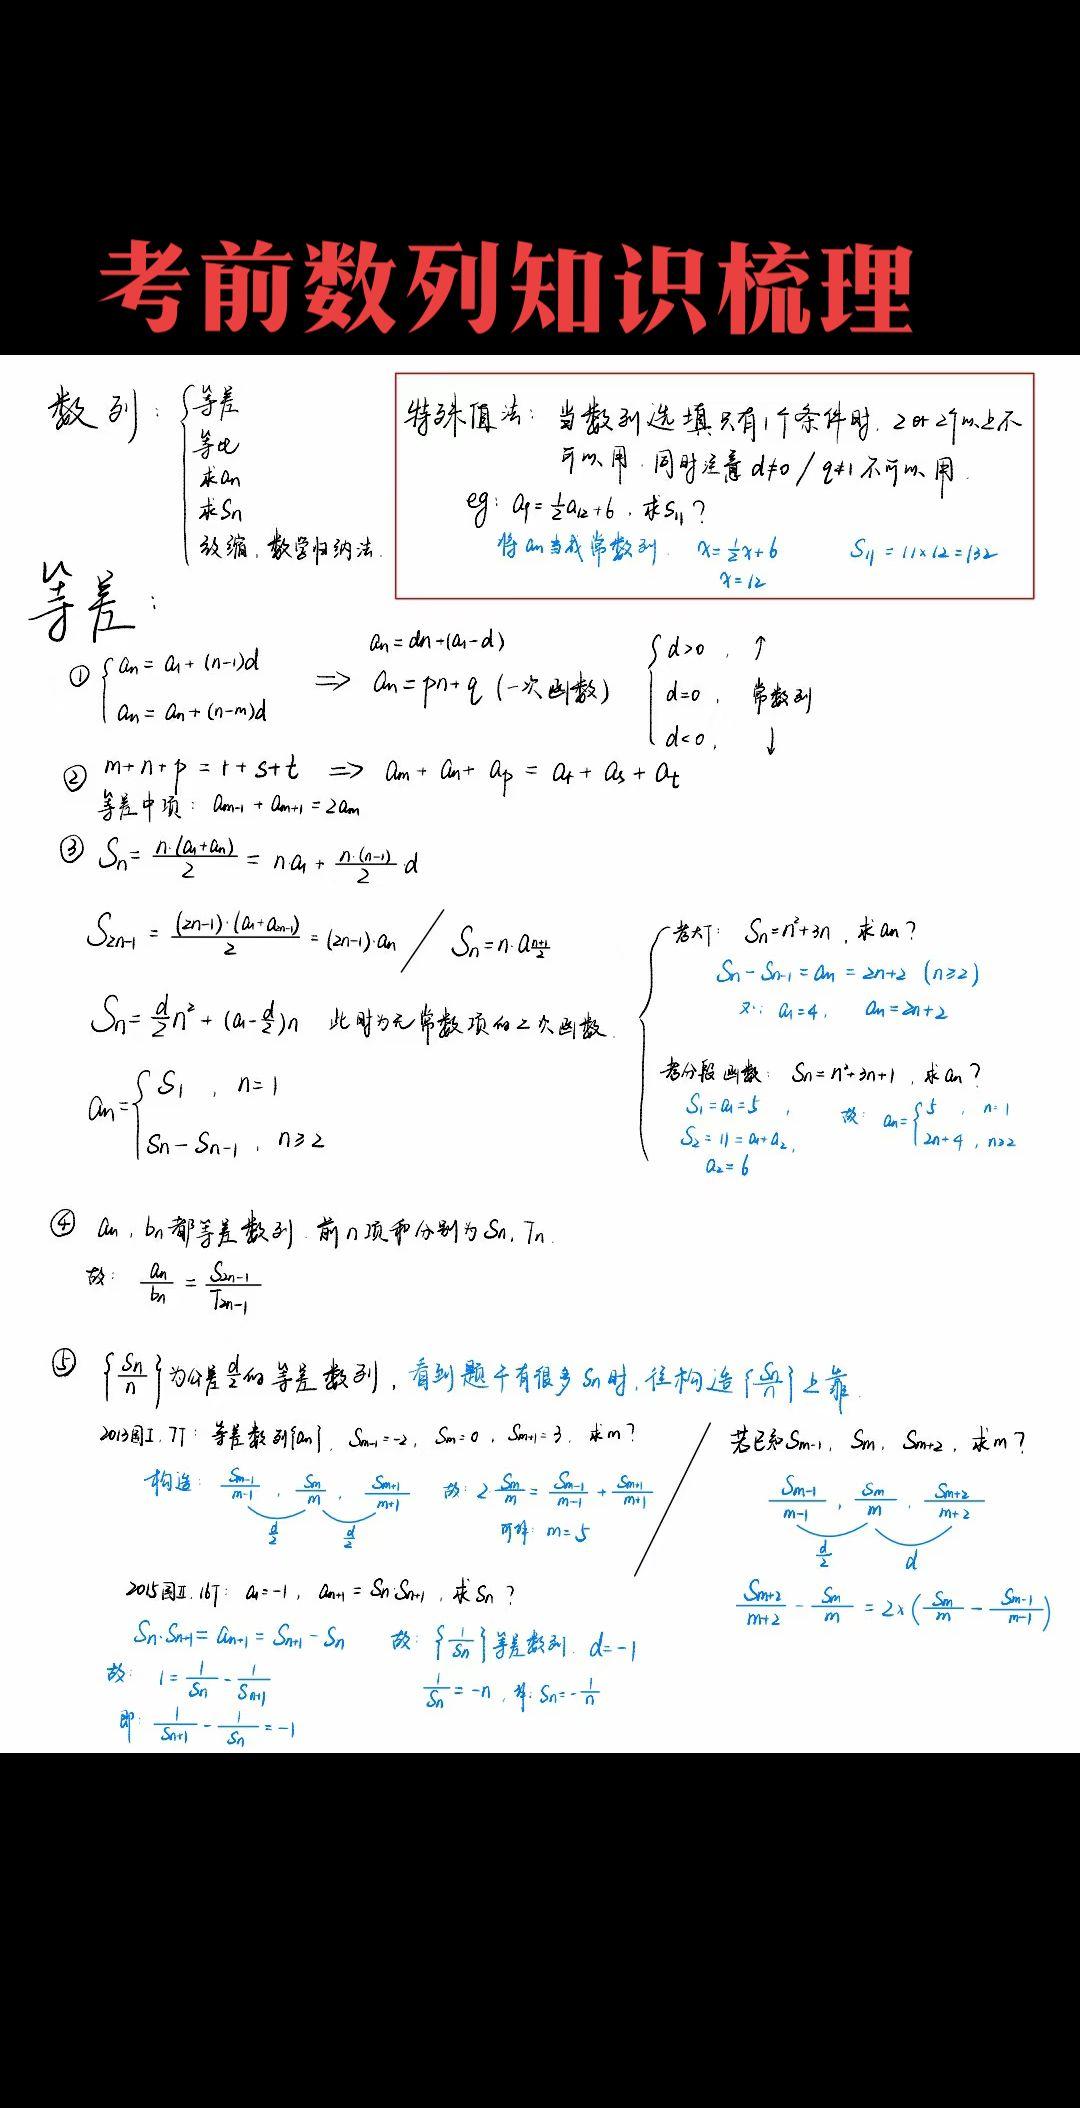 考前数列知识梳理
数列：{等差
等比
求an
求Sn
放缩，数学归纳法.
特殊值法：当数列选填只有1个条件时，2 or 2个以上不
可以用.同时注意 d≠0 / q≠1 不可以用.
eg: a₉=½a₁₂+6，求S₁₁？
将an当成常数列. x=½x+6 S₁₁=11×12=132
x=12
等差：
① {an=a₁+(n-1)d
an=am+(n-m)d
⇒ an=dn+(a₁-d)
an=pn+q (一次函数)
{d>0，↑
d=0，常数列
d<0，↓
② m+n+p=r+s+t ⇒ am+an+ap=ar+as+at
等差中项：am-1+am+1=2am
③ Sn=n·(a₁+an)/2=na₁+n·(n-1)/2 d
S2n-1=(2n-1)·(a₁+a2n-1)/2=(2n-1)·an / Sn=n·a(n+1)/2
Sn=d/2 n²+(a₁-d/2)n 此时为无常数项的二次函数.
an={S₁，n=1
Sn-Sn-1，n≥2
{考大T：Sn=n²+3n，求an？
Sn-Sn-1=an=2n+2 (n≥2)
又∵a₁=4， an=2n+2
考分段函数：Sn=n²+3n+1，求an？
S₁=a₁=5， 故：an={5，n=1
S₂=11=a₁+a₂， 2n+4，n≥2
a₂=6
④ an，bn都等差数列.前n项和分别为Sn，Tn.
故：an/bn=S2n-1/T2n-1
⑤ {Sn/n}为公差d/2的等差数列，看到题干有很多Sn时，往构造{Sn/n}上靠.
2013国I.7T：等差数列{an}，Sm-1=-2，Sm=0，Sm+1=3.求m？
构造：Sm-1/m-1，Sm/m，Sm+1/m+1 故：2 Sm/m=Sm-1/m-1+Sm+1/m+1
d/2 d/2 可得：m=5
若已知Sm-1，Sm，Sm+2，求m？
Sm-1/m-1，Sm/m，Sm+2/m+2
d/2 d
Sm+2/m+2-Sm/m=2×(Sm/m-Sm-1/m-1)
2015国II.16T：a₁=-1，an+1=Sn·Sn+1，求Sn？
Sn·Sn+1=an+1=Sn+1-Sn 故：{1/Sn}等差数列.d=-1
故：1=1/Sn-1/Sn+1 1/Sn=-n，得：Sn=-1/n
即：1/Sn+1-1/Sn=-1